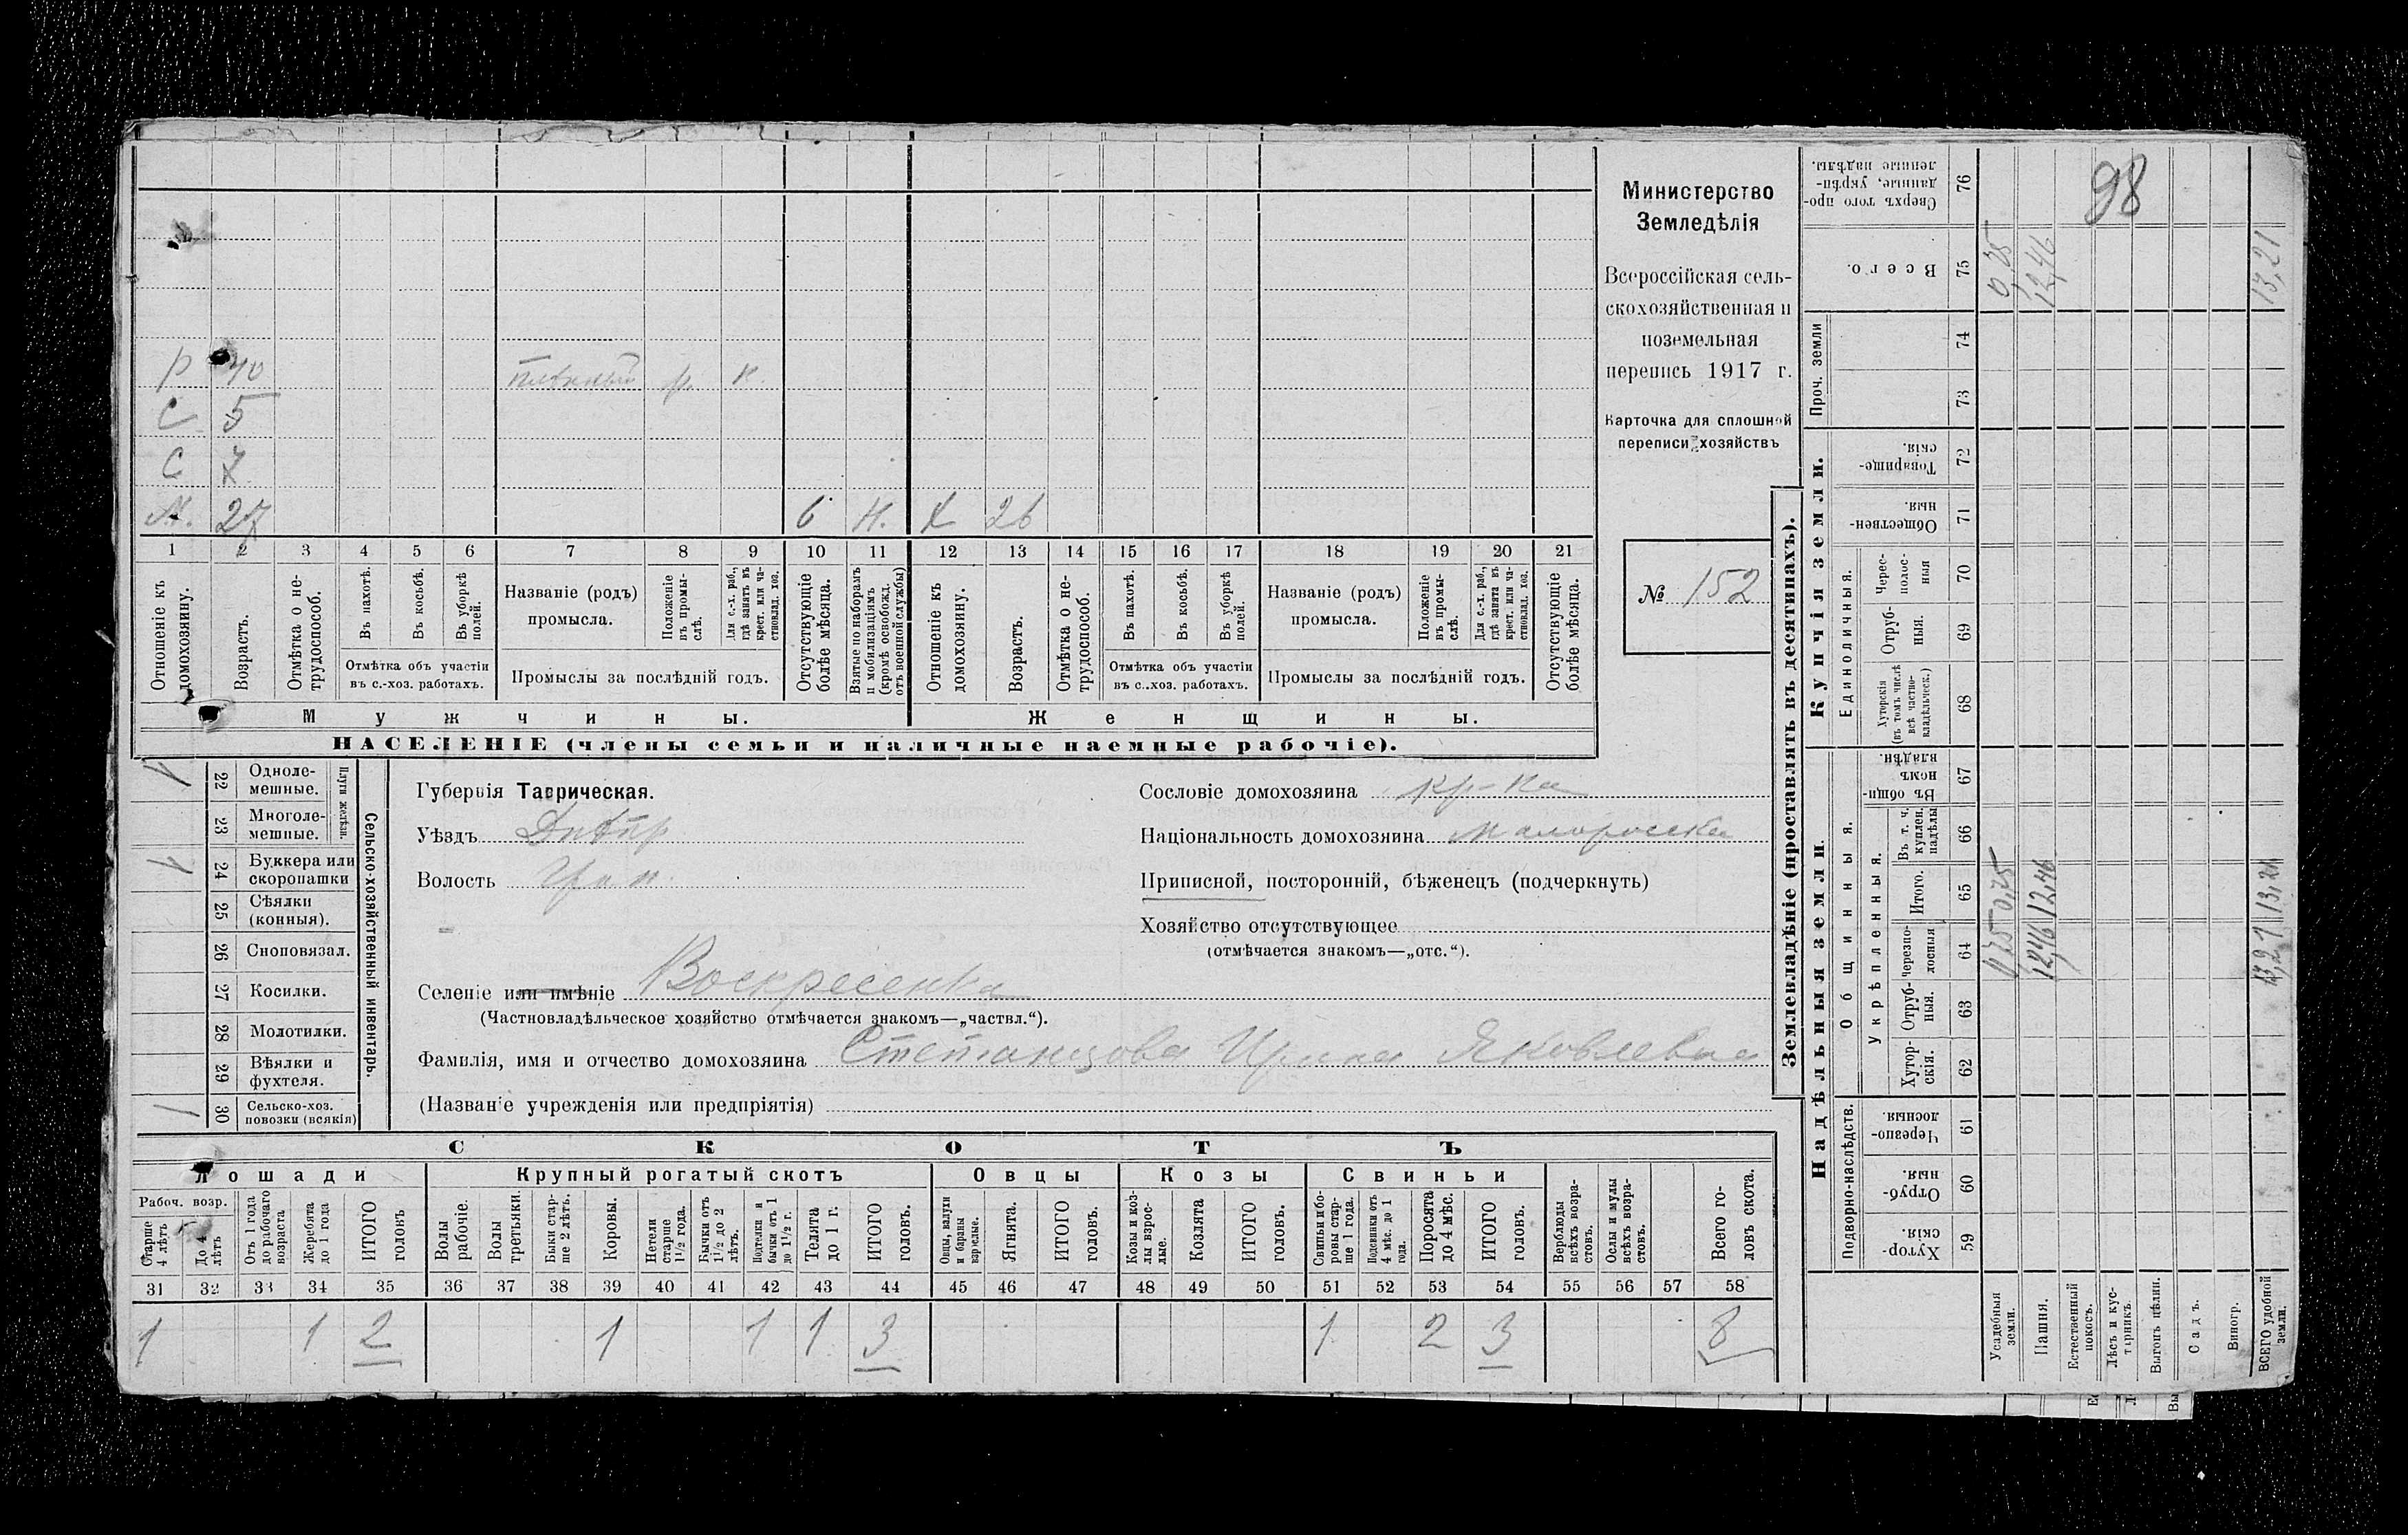 Министерство
Земледѣлія
Всероссійская сель-
скохозяйственная и
поземельная
перепись 1917 г.
Карточка для сплошной
переписи хозяйствъ
№ 152
98
Р 40 плѣнный р. к.
С 5
С 7
М. 27 6 н. Х 26
1 2 3 4 5 6 7 8 9 10 11 12 13 14 15 16 17 18 19 20 21
Отношеніе къ домохозяину.
Возрастъ.
Отмѣтка о не-трудоспособ.
Въ пахотѣ.
Въ косьбѣ.
Въ уборкѣ полей.
Отмѣтка объ участіи въ с.-хоз. работахъ.
Названіе (родъ) промысла.
Положеніе въ промы-слѣ.
Для с.-х. раб., гдѣ занятъ въ крест. или ча-стновлад. хоз.
Промыслы за послѣдній годъ.
Отсутствующіе болѣе мѣсяца.
Взятые по наборамъ и мобилизаціямъ (кромѣ освобожд. отъ военной службы)
Отношеніе къ домохозяину.
Возрастъ.
Отмѣтка о не-трудоспособ.
Въ пахотѣ.
Въ косьбѣ.
Въ уборкѣ полей.
Отмѣтка объ участіи въ с..хоз. работахъ.
Названіе (родъ) промысла.
Положеніе въ промы-слѣ.
Для с.-х. раб., гдѣ занята въ крест. или ча-стновлад. хоз.
Промыслы за послѣдній годъ.
Отсутствующіе болѣе мѣсяца.
Мужчины. Женщины.
НАСЕЛЕНІЕ (члены семьи и наличные наемные рабочіе).
Сельско-хозяйственный инвентарь.
Плуги желѣзн.
1 22 Одноле-мешные.
23 Многоле-мешные.
1 24 Буккера или скоропашки
25 Сѣялки (конныя).
26 Сноповязал.
27 Косилки.
28 Молотилки.
29 Вѣялки и фухтеля.
1 30 Сельско-хоз. повозки (всякія)
Губернія Таврическая.
Уѣздъ Днѣпр
Волость
Сословіе домохозяина кр-ка
Національность домохозяина Малоросска
Приписной, посторонній, бѣженецъ (подчеркнуть)
Хозяйство отсутствующее
(отмѣчается знакомъ—„отс.“).
Селеніе или имѣніе Воскресенка
(Частновладѣльческое хозяйство отмѣчается знакомъ—„частвл.“).
Фамилія, имя и отчество домохозяина Степанцова Ирина Яковлевна
(Названіе учрежденія или предпріятія)
СКОТЪ
Лошади Крупный рогатый скотъ Овцы Козы Свиньи
Рабоч. возр.
Старше 4 лѣтъ
До 4 лѣтъ
Отъ 1 года до рабочаго возраста
Жеребята до 1 года
ИТОГО головъ
Волы рабочіе.
Волы третьяки.
Быки стар-ше 2 лѣтъ.
Коровы.
Нетели старше 1 1/2 года.
Бычки отъ 1 1/2 до 2 лѣтъ.
Подтелки и бычки отъ 1 до 1 1/2 г.
Телята до 1 г.
ИТОГО головъ.
Овцы, валухи и бараны взрослые.
Ягнята.
ИТОГО головъ.
Козы и коз-лы взрос-лые.
Козлята
ИТОГО головъ.
Свиньи и бо-ровы стар-ше 1 года.
Подсвинки отъ 4 мѣс. до 1 года.
Поросята до 4 мѣс.
ИТОГО головъ.
Верблюды всѣхъ возра-стовъ.
Ослы и мулы всѣхъ возра-стовъ.
Всего го-ловъ скота.
31 32 33 34 35 36 37 38 39 40 41 42 43 44 45 46 47 48 49 50 51 52 53 54 55 56 57 58
1 1 2 1 1 1 3 1 2 3 8
Землевладѣніе (проставлять въ десятинахъ).
Купчія земли.
Надѣльныя земли
76 Сверхъ того про-данные, укрѣп-ленные надѣлы.
75 Всего. 0,75 12,46 13,21
Проч. земли
74
73
72 Товарище-скія
71 Обществен-ныя
Единоличныя.
70 Черес-полос-ныя
69 Отруб-ныя.
68 Хуторскія (въ томъ числѣ всѣ частно-владѣльческ.)
67 Въ общи-номъ владѣн.
Общинныя.
Укрѣпленныя.
66 Въ т. ч. куплен. надѣлы
65 Итого. 0,75 12,46 13,21
64 Черезпо-лосныя 0,75 12,46 13,21
63 Отруб-ныя.
62 Хутор-скія.
Подворно-наслѣдств.
61 Черезпо-лосныя
60 Отруб-ныя.
59 Хутор-скія
Усадебныя земли.
Пашня.
Естественный покосъ.
Лѣсъ и кус-тарникъ.
Выгонъ цѣлин.
Садъ.
Виногр.
ВСЕГО удобной земли.